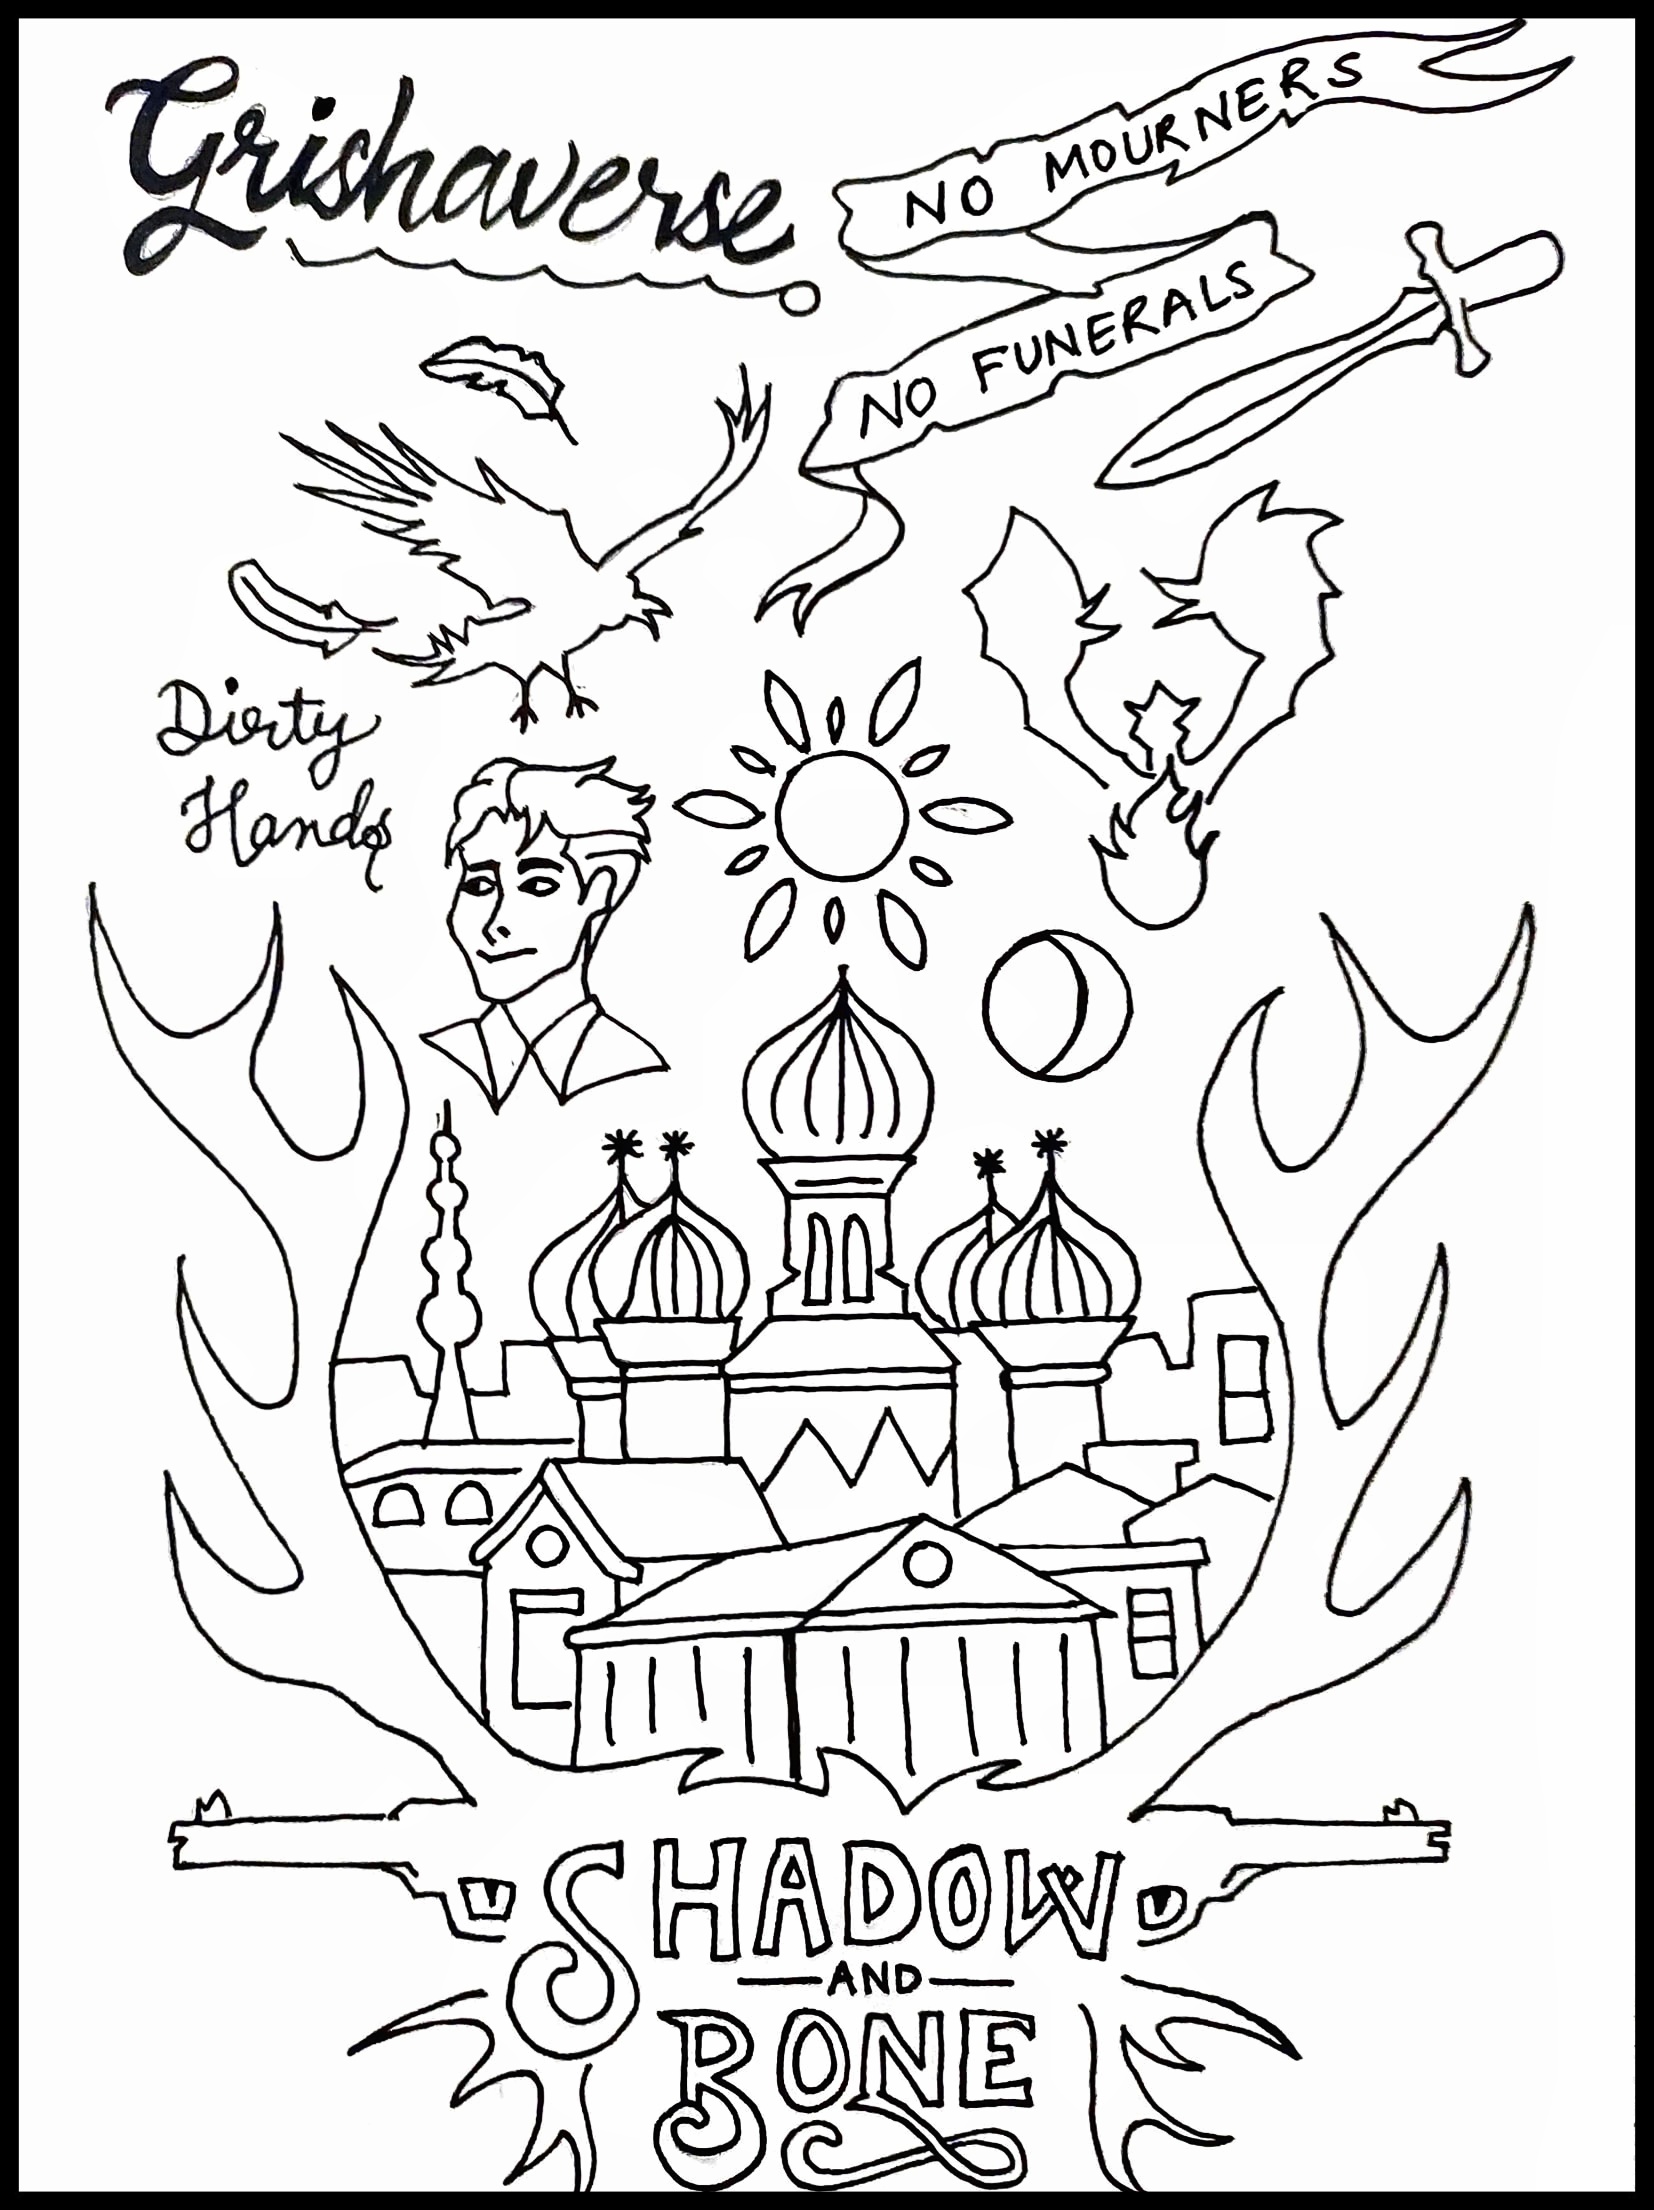 Grishaverse
NO MOURNERS
NO FUNERALS
Dirty
Hands
SHADOW
AND
BONE